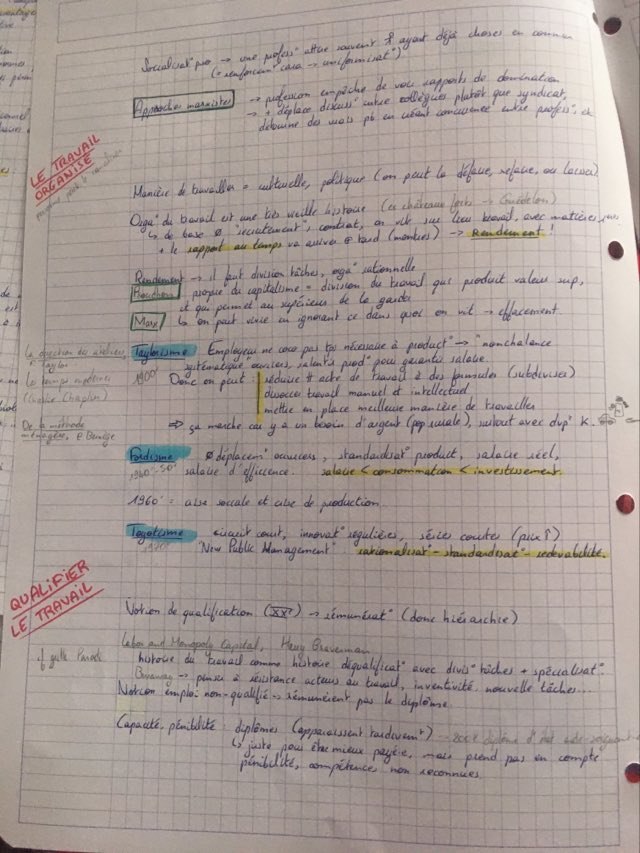 Socialisat° pro → une profess° attire souvent ayant déjà choses en commun
(= renforcem^t → uniformisat°)
Approches marxistes → profession empêche de voir rapports de domination
→ + déplace discuss° entre collègues plutôt que syndicat,
détourne des vrais pb en créant concurrence entre profess°, etc
LE TRAVAIL
ORGANISÉ
Manière de travailler = culturelle, politique (on peut la défaire, refaire, ou laisser)
Orga° du travail est une très vieille histoire (châteaux forts → Guédelon)
↳ de base Ø "recrutement", contrat, on vit sur lieu travail, avec matières
+ le rapport au temps va arriver + tard (montres) → Rendement !
Rendement → il faut division tâches, orga° rationnelle
propre du capitalisme = division du travail qui product valeur sup,
et qui permet au supérieur de la garder
Marx ↳ on peut vivre en ignorant ce dans quoi on vit → effacement.
La direction des ateliers,
Taylor
Les temps modernes
(Charlie Chaplin)
De la méthode
ménagère, P Bernège
Taylorisme Employeur ne connaît pas tps nécessaire à product° → "nonchalance
1900' systématique ouvriers, salariés prod° pour garantir salaire.
Donc on peut : réduire acte de travail à des formules (subdiviser)
divorcer travail manuel et intellectuel
mettre en place meilleure manière de travailler
⇒ ça marche car y a un besoin d'argent (pop rurale), surtout avec dvp^t K.
Fordisme Ø déplacem^t ouvriers, standardisat° product, salaire réel,
salaire d'efficience. salaire < consommation < investissement.
1960' = crise sociale et crise de production.
Toyotisme circuit court, innovat° régulières, séries courtes (prix ↑)
1970' "New Public Management" rationalisat° - standardisat° - redevabilité.
QUALIFIER
LE TRAVAIL
Notion de qualification (XXe) → rémunérat° (donc hiérarchie)
Labor and Monopoly Capital, Harry Braverman
cf grille Parodi
histoire du travail comme histoire déqualificat° avec divis° tâches + spécialisat°
Burawoy → penser à résistance acteurs au travail, inventivité, nouvelle tâches...
Notion emploi non-qualifié → rémunérent pas le diplôme.
Capacité, pénibilité : diplômes (apparaissent tardivem^t) → diplôme d'état aide-soignant
↳ juste pour être mieux payé.e, mais prend pas en compte
pénibilité, compétences non reconnues